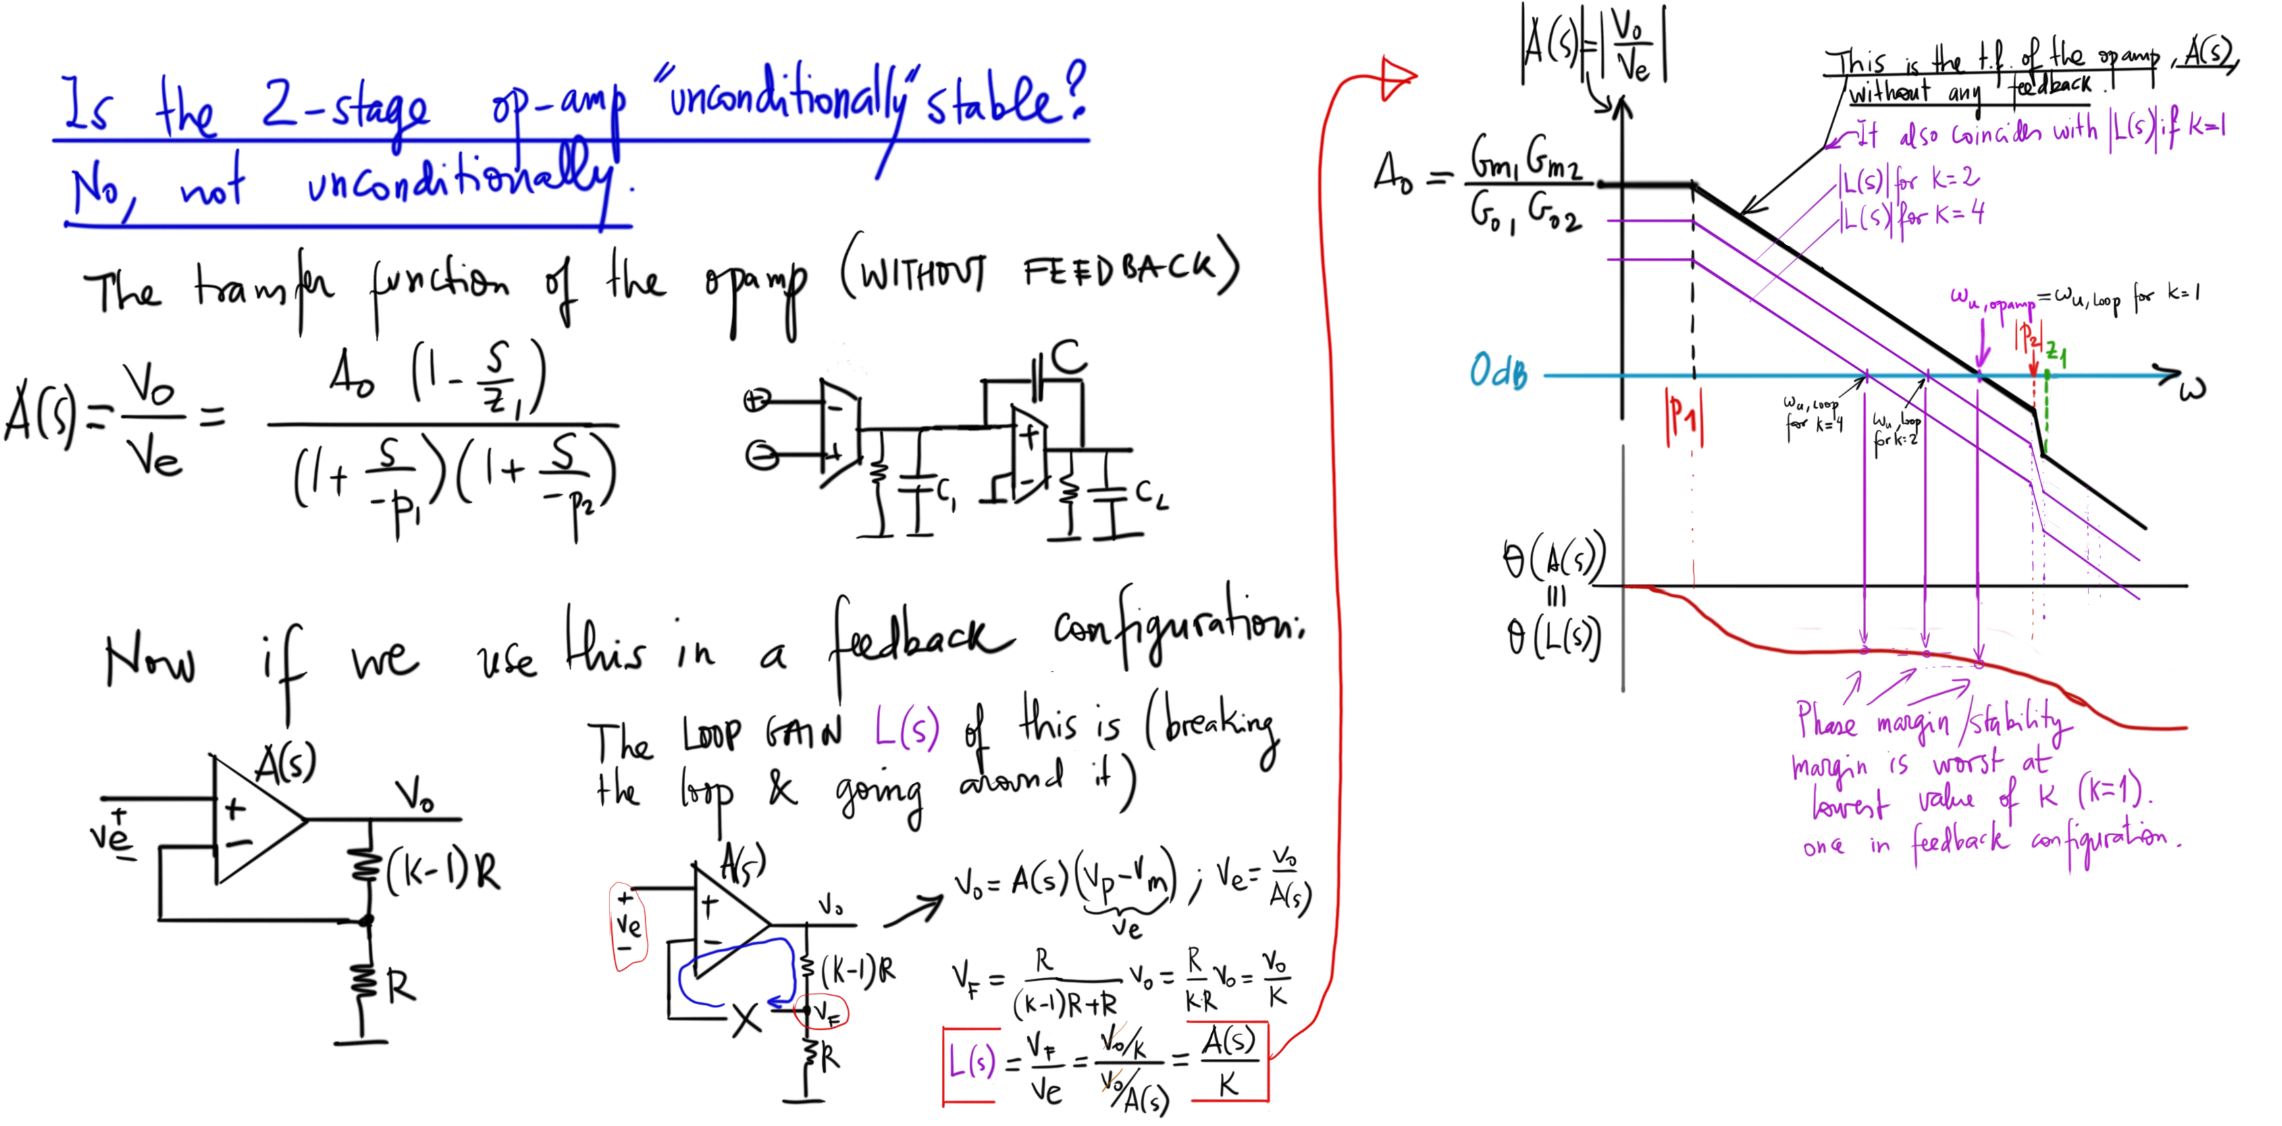 Is the 2-stage op-amp "unconditionally" stable?
No, not unconditionally.
The transfer function of the opamp (WITHOUT FEEDBACK)
A(s) = Vo/Ve = Ao (1 - s/z1) / (1 + s/-p1)(1 + s/-p2)
+
-
-
+
C
C1
+
-
CL
Now if we use this in a feedback configuration:
A(s)
+
ve
-
+
-
Vo
(k-1)R
R
The LOOP GAIN L(s) of this is (breaking
the loop & going around it)
A(s)
+
ve
-
+
-
vo
(k-1)R
X
VF
R
Vo = A(s)(Vp - Vm) ; Ve = Vo/A(s)
ve
VF = R/((k-1)R+R) vo = R/(k·R) vo = vo/k
L(s) = VF/Ve = (Vo/k)/(Vo/A(s)) = A(s)/k
|A(s)| = |Vo/Ve|
This is the t.f. of the opamp, A(s),
without any feedback.
It also coincides with |L(s)| if k=1
|L(s)| for k=2
|L(s)| for k=4
Ao = Gm1 Gm2 / Go1 Go2
ωu,opamp = ωu,loop for k=1
|p2|
z1
0dB
ω
|p1|
ωu,loop
for k=4
ωu,loop
for k=2
θ(A(s))
≡
θ(L(s))
Phase margin/stability
margin is worst at
lowest value of k (k=1).
once in feedback configuration.